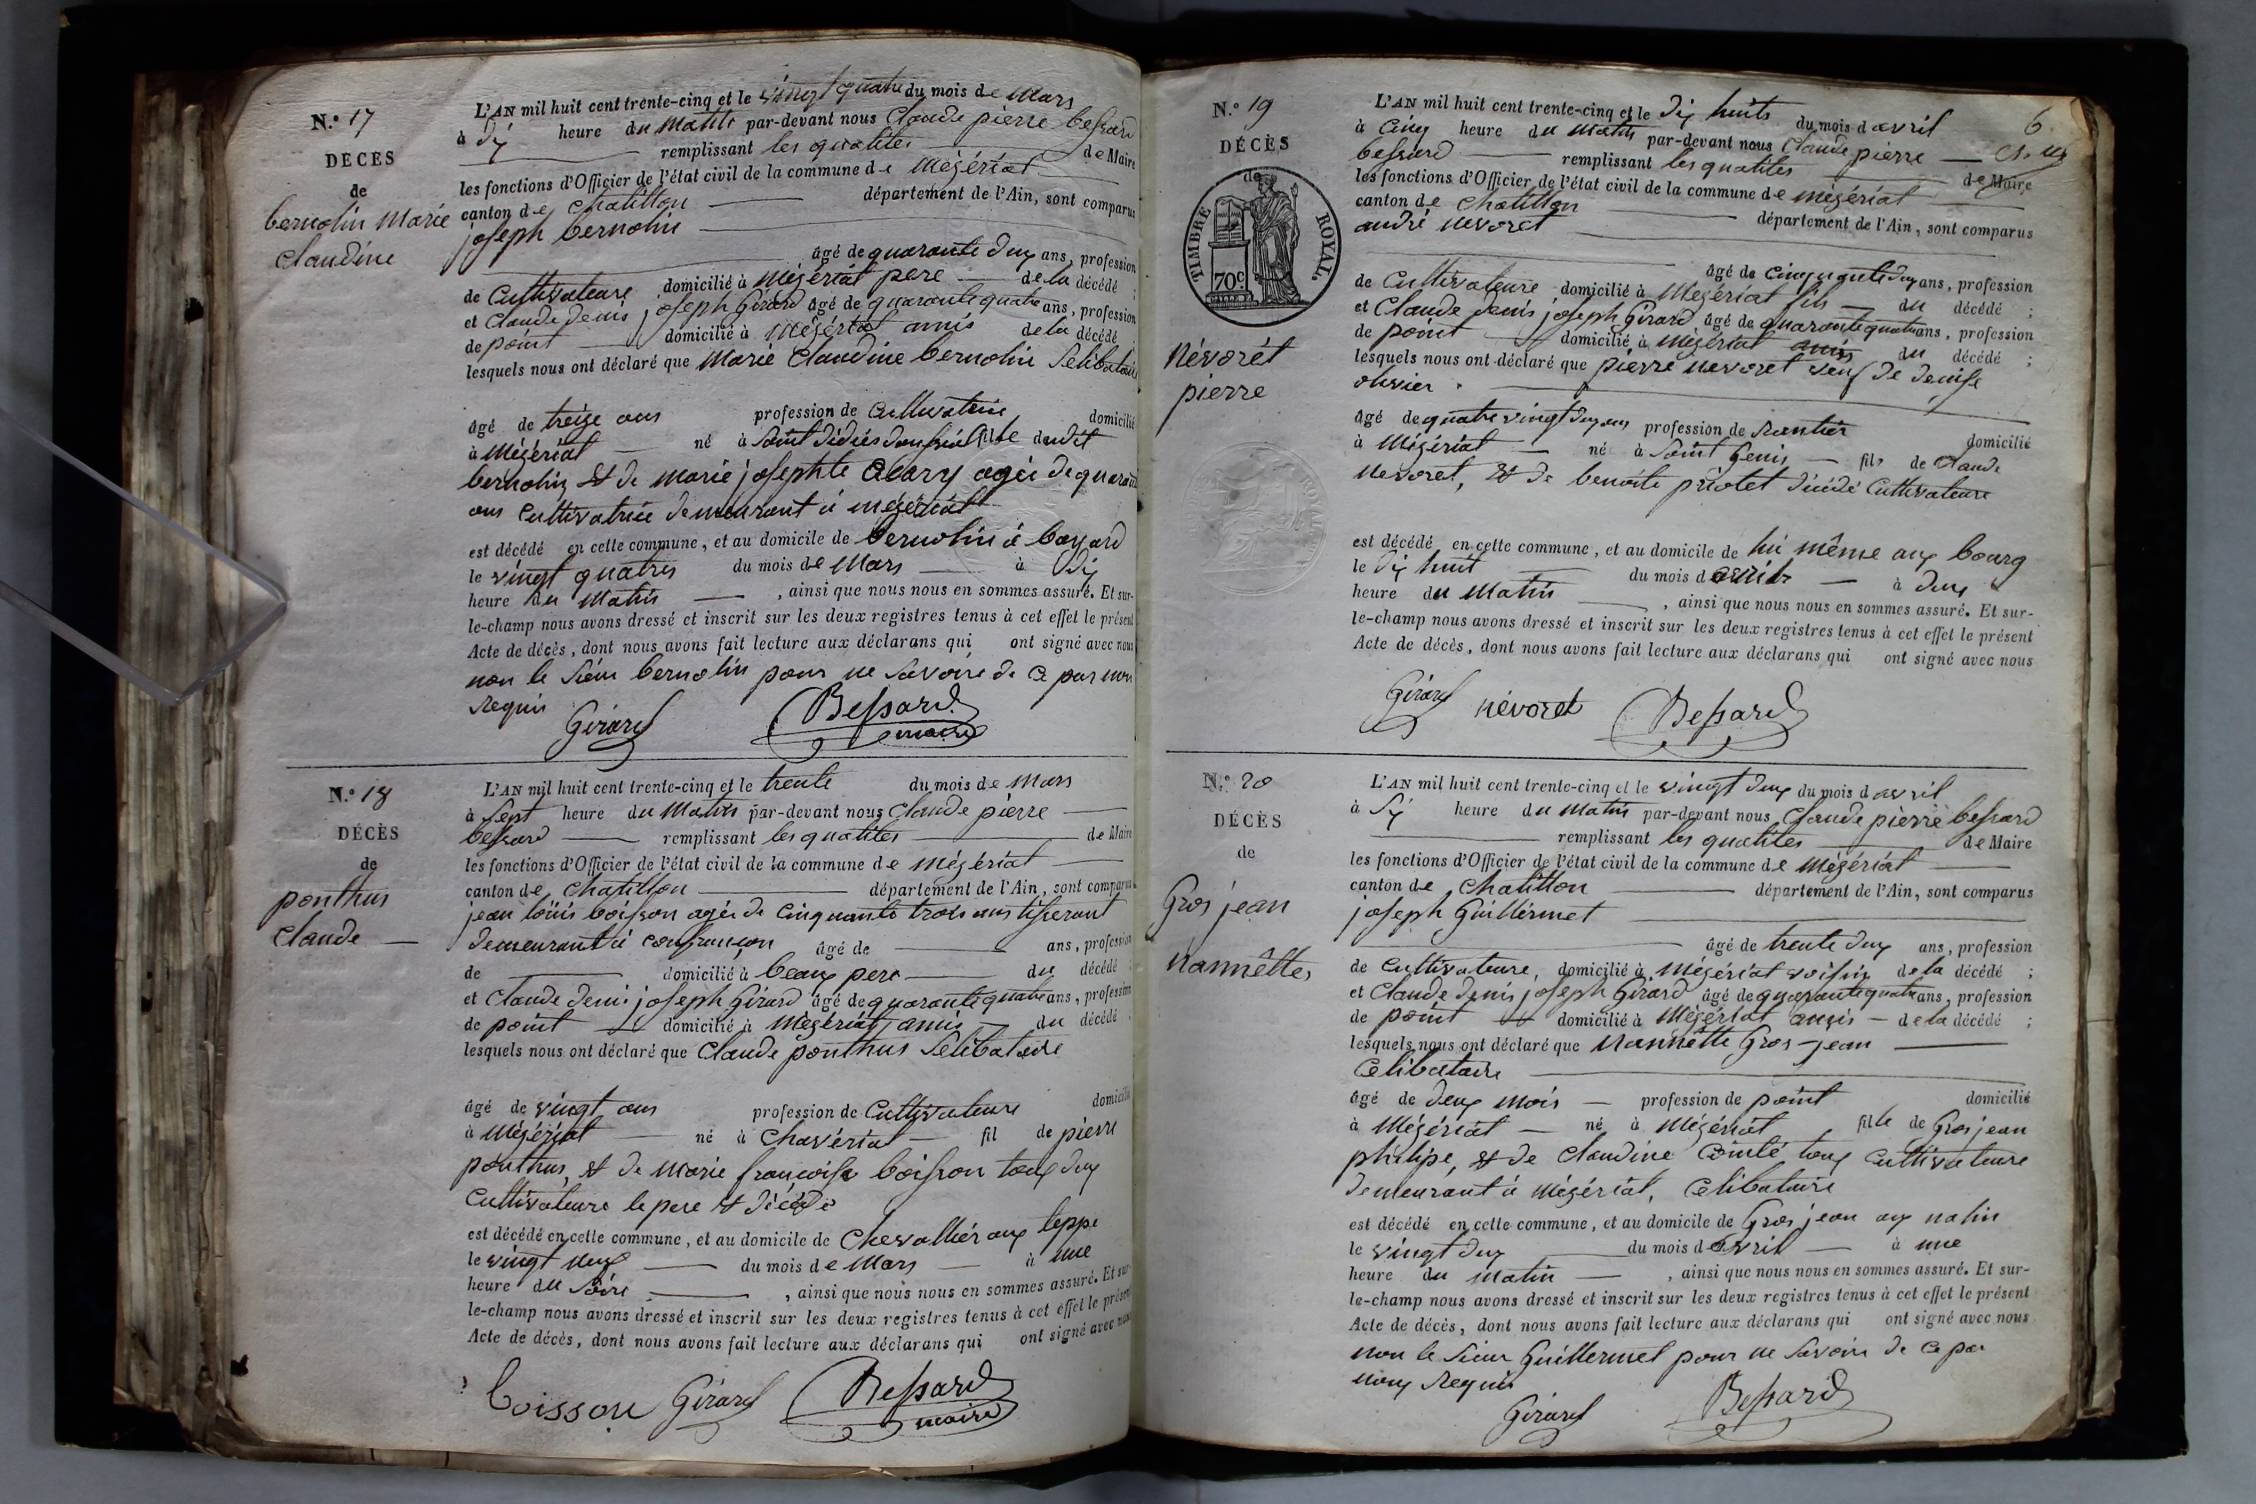 N.° 17
DÉCÈS
de
bernolin Marie
Claudine
L'AN mil huit cent trente-cinq et le vingt quatre du mois de Mars
à dix heure du Matin par-devant nous Claude pierre bessard
remplissant les qualités de Maire
les fonctions d'Officier de l'état civil de la commune de Mégériat
canton de Chatillon département de l'Ain, sont comparus
joseph bernolin
âgé de quarante deux ans, profession
de Cultivateure domicilié à Mégériat pere de la décédé ;
et Claude denis joseph Girard âgé de quarante quatre ans, profession
de point domicilié à Mégériat amis de la décédé ;
lesquels nous ont déclaré que Marie Claudine bernolin Selibataire
âgé de treize ans profession de Cultivateure domicilié
à Mégériat né à Saint didié fille dudit
bernolin, et de marie josephte Clary agée de quarante
ans Cultivatrice demeurant à mégériat
est décédé en cette commune, et au domicile de bernolin à bayard
le vingt quatres du mois de Mars à dix
heure du Matin , ainsi que nous nous en sommes assuré. Et sur-
le-champ nous avons dressé et inscrit sur les deux registres tenus à cet effet le présent
Acte de décès, dont nous avons fait lecture aux déclarans qui ont signé avec nous
non le Sieur bernolin pour ne Savoire de ce par nous
Requis
Girard Bessard
maire
N.° 18
DÉCÈS
de
ponthus
Claude
L'AN mil huit cent trente-cinq et le trente du mois de Mars
à Sept heure du Matin par-devant nous Claude pierre
bessard remplissant les qualites de Maire
les fonctions d'Officier de l'état civil de la commune de mégériat
canton de Chatillon département de l'Ain, sont comparus
jean loüis boisson agée de Cinquante trois ans tisserant
demeurant à confrançon âgé de ans, profession
de domicilié à beaux pere du décédé ;
et Claude denis joseph Girard âgé de quarante quatre ans, profession
de point domicilié à Mégériat amis du décédé
lesquels nous ont déclaré que Claude ponthus Selibataire
âgé de vingt ans profession de Cultivateure domicilié
à Mégériat né à Chavériat fil de pierre
ponthus, et de marie françoise boisson tous deux
Cultivateure le pere et décédé
est décédé en cette commune, et au domicile de Chevallier aux leppe
le vingt neuf du mois de Mars à une
heure du Soire , ainsi que nous nous en sommes assuré. Et sur-
le-champ nous avons dressé et inscrit sur les deux registres tenus à cet effet le présent
Acte de décès, dont nous avons fait lecture aux déclarans qui ont signé avec nous
boisson Girard Bessard
maire
6
N.° 19
DÉCÈS
de
TIMBRE ROYAL
70c
Névorét
pierre
L'AN mil huit cent trente-cinq et le dix huits du mois d avril
à Cinq heure du Matin par-devant nous Claude pierre
bessard remplissant les qualites de Maire
les fonctions d'Officier de l'état civil de la commune de mégériat
canton de Chatillon département de l'Ain, sont comparus
andré nevoret
âgé de Cinquante deux ans, profession
de Cultivateure domicilié à Mégériat fils du décédé ;
et Claude denis joseph Girard âgé de quarante quatre ans, profession
de point domicilié à Mégériat amis du décédé ;
lesquels nous ont déclaré que pierre nevoret veuf de denise
olivier
âgé de quatre vingt deux ans profession de Rentier domicilié
à Mégériat né à Saint Genis fils de Claude
nevoret, et de benoite décédé Cultivateure
est décédé en cette commune, et au domicile de lui même aux bourg
le dix huit du mois d avril à deux
heure du Matin , ainsi que nous nous en sommes assuré. Et sur-
le-champ nous avons dressé et inscrit sur les deux registres tenus à cet effet le présent
Acte de décès, dont nous avons fait lecture aux déclarans qui ont signé avec nous
Girard névoret Bessard
N.° 20
DÉCÈS
de
Gros jean
Nannêtte
L'AN mil huit cent trente-cinq et le vingt deux du mois d avril
à Six heure du Matin par-devant nous Claude pierre bessard
remplissant les qualites de Maire
les fonctions d'Officier de l'état civil de la commune de mégériat
canton de Chatillon département de l'Ain, sont comparus
joseph Guillermet
âgé de trente deux ans, profession
de Cultivateure, domicilié à Mégériat voisin de la décédé ;
et Claude denis joseph Girard âgé de quarante quatre ans, profession
de point domicilié à Mégériat amis de la décédé ;
lesquels nous ont déclaré que Nannêtte Gros-jean
Célibataire
âgé de deux mois profession de point domicilié
à Mégériat né à Mégériat fille de Grosjean
philipe, et de Claudine tous Cultivateure
demeurant à Mégériat, Célibataire
est décédé en cette commune, et au domicile de Gros jean aux
le vingt deux du mois d avril à une
heure du Matin , ainsi que nous nous en sommes assuré. Et sur-
le-champ nous avons dressé et inscrit sur les deux registres tenus à cet effet le présent
Acte de décès, dont nous avons fait lecture aux déclarans qui ont signé avec nous
non le Sieur Guillermet pour ne Savoir de ce par
nous Requis
Girard Bessard